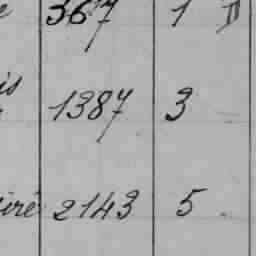 367 1 II
is
1387 3
iré 2143 5.